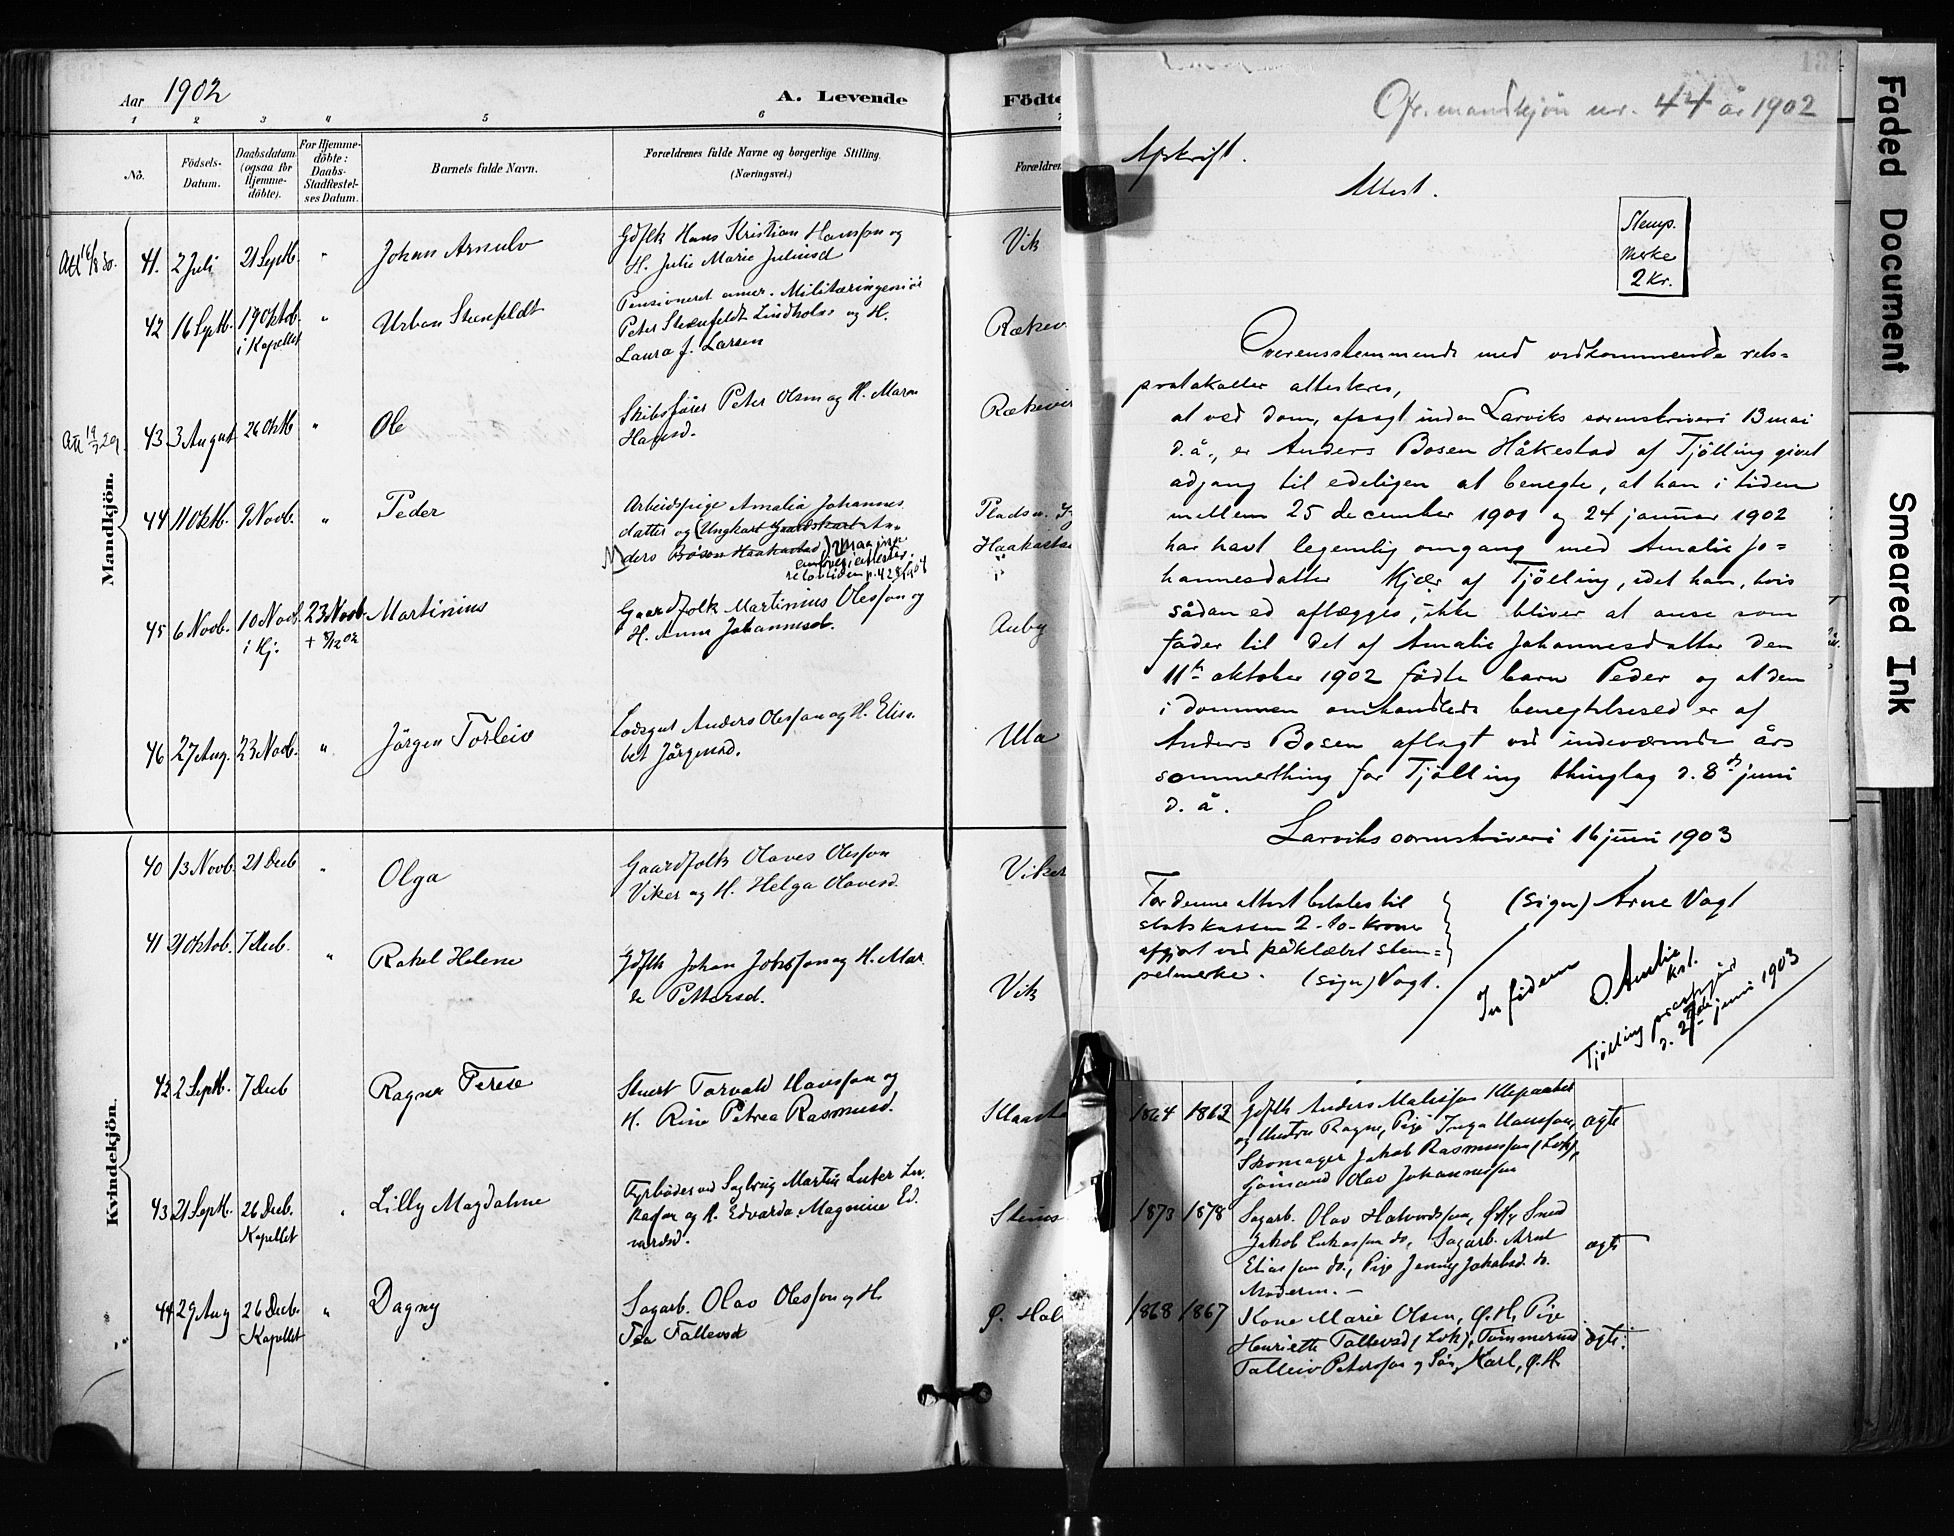 Aar 1902
A. Levende
Födte
1 2 3 4 5 6
No.
Födsels-
Datum.
Daabsdatum
(ogsaa for
Hjemme-
döbte).
For Hjemme-
döbte:
Daabs-
Stadfæstel-
ses Datum.
Barnets fulde Navn.
Forældrenes fulde Navne og borgerlige Stilling.
(Næringsvei.)
Forældren
Mandkjön.
Att 16/8 30. 41. 2 Juli 21 Septb. " Johan Arnulv
Gdflk Hans Kristian Hansson og
H. Julie Marie Juliusd
Vik
42 16 Septb. 19 Oktob. " Urban Steenfeldt
i Kapellet
Pensioneret amer. Militæringeniör
Peter Steenfeldt Lindholm og H.
Laura J. Larsen
Rækev
43. 3 August 26 Oktb " Ole
Skibsförer Peter Olsen og H. Maren
Hansd.
Rækevi
44 11 Oktb. 9 Novb. " Peder
Arbeidspige Amalia Johannes
datter og (Ungkarl Gaardskarl An-
ders Bosen Haakestad)
Pladsn.
Haakesta
45 6 Novb. 10 Novb. 23 Novb. Martinius
i Hj. + 8/12 02
Gaardfolk Martinius Olesson og
H. Anne Johannesd.
Auby
46 27 Aug. 23 Novb. " Jörgen Torleiv
Lodsgut Anders Olesson og H. Elisa-
bet Jörgensd.
Ula
Kvindekjön.
40 13 Novb. 21 Decb " Olga
Gaardfolk Olaves Olesson
Viker og H. Helga Olavesd.
Viker
41 21 Oktob. 7 Decb. " Rakel Helene
Gdflk Johan Jokobsson og H. Mar
te Pettersd.
Vik
42 2 Septb. 7 Decb Ragna Terese
Stuert Torvald Hansson og
H. Rine Petrea Rasmusd.
Klaasta
43 21 Septb. 26 Decb. " Lilly Magdalene
Kapellet
Fyrböder ved Sagbrug Martin Luter
og H. Edvarda Magnine Ed-
vardsd.
44 29 Aug 26 Decb. " Dagny
Kapellet
Sagarb. Olav Olesson og H.
Tea Tallevsd
Ø. Hal
Cfr. mandkjön nr. 44 år 1902
Afskrift.
Attest.
Stemp.
merke
2 Kr.
Overensstemmende med vedkommende rets-
protokoller attesteres,
at ved dom, afsagt inden Larviks sorenskriveri 13 mai
d.å., er Anders Bosen Håkestad af Tjölling givet
adgang til edeligen at benegte, at han i tiden
mellem 25 december 1901 og 24 januar 1902
har havt legemlig omgang med Amalie Jo-
hannesdatter Kjær af Tjölling, idet han, hvis
sådan ed aflægges, ikke bliver at anse som
fader til det af Amalie Johannesdatter den
11te oktober 1902 födte barn Peder og at den
i dommen omhandlede benegtelsesed er af
Anders Bosen aflagt ved indeværende års
sommerthing for Tjölling thinglag d. 8de juni
d. å.
Larviks sorenskriveri 16 juni 1903
(sign) Arne Vogt
For denne attest betales til
statskassen 2 - to - kroner
afgjort ved påklæbet stem-
pelmerke. (sign) Vogt.
In fidem
O. Amlie
kst.
Tjölling prestegjeld
d. juni 1903
1864 1862 Gdflk Anders Mathisson Klepaaker
og Hustru Ragna, Pige Inga Hansson,
Skomager Jakob Rasmusson (Lvk),
Sömand Olav Johannesson
ægte
1873 1878 Sagarb. Olav Halvordsson, Ø.H., Smed
Jakob Lukasson do, Sagarb. Arnt
Eliasson do., Pige Jenny Jakobsd. do.
Moderen. -
ægte
1868 1867 Kone Marie Olsen, Ø.H., Pige
Henriette Tallevsd (Lvk), Tömmermd
Talleiv Petersson og Sön Karl, Ø.H.
ægte.
Faded Document
Smeared Ink